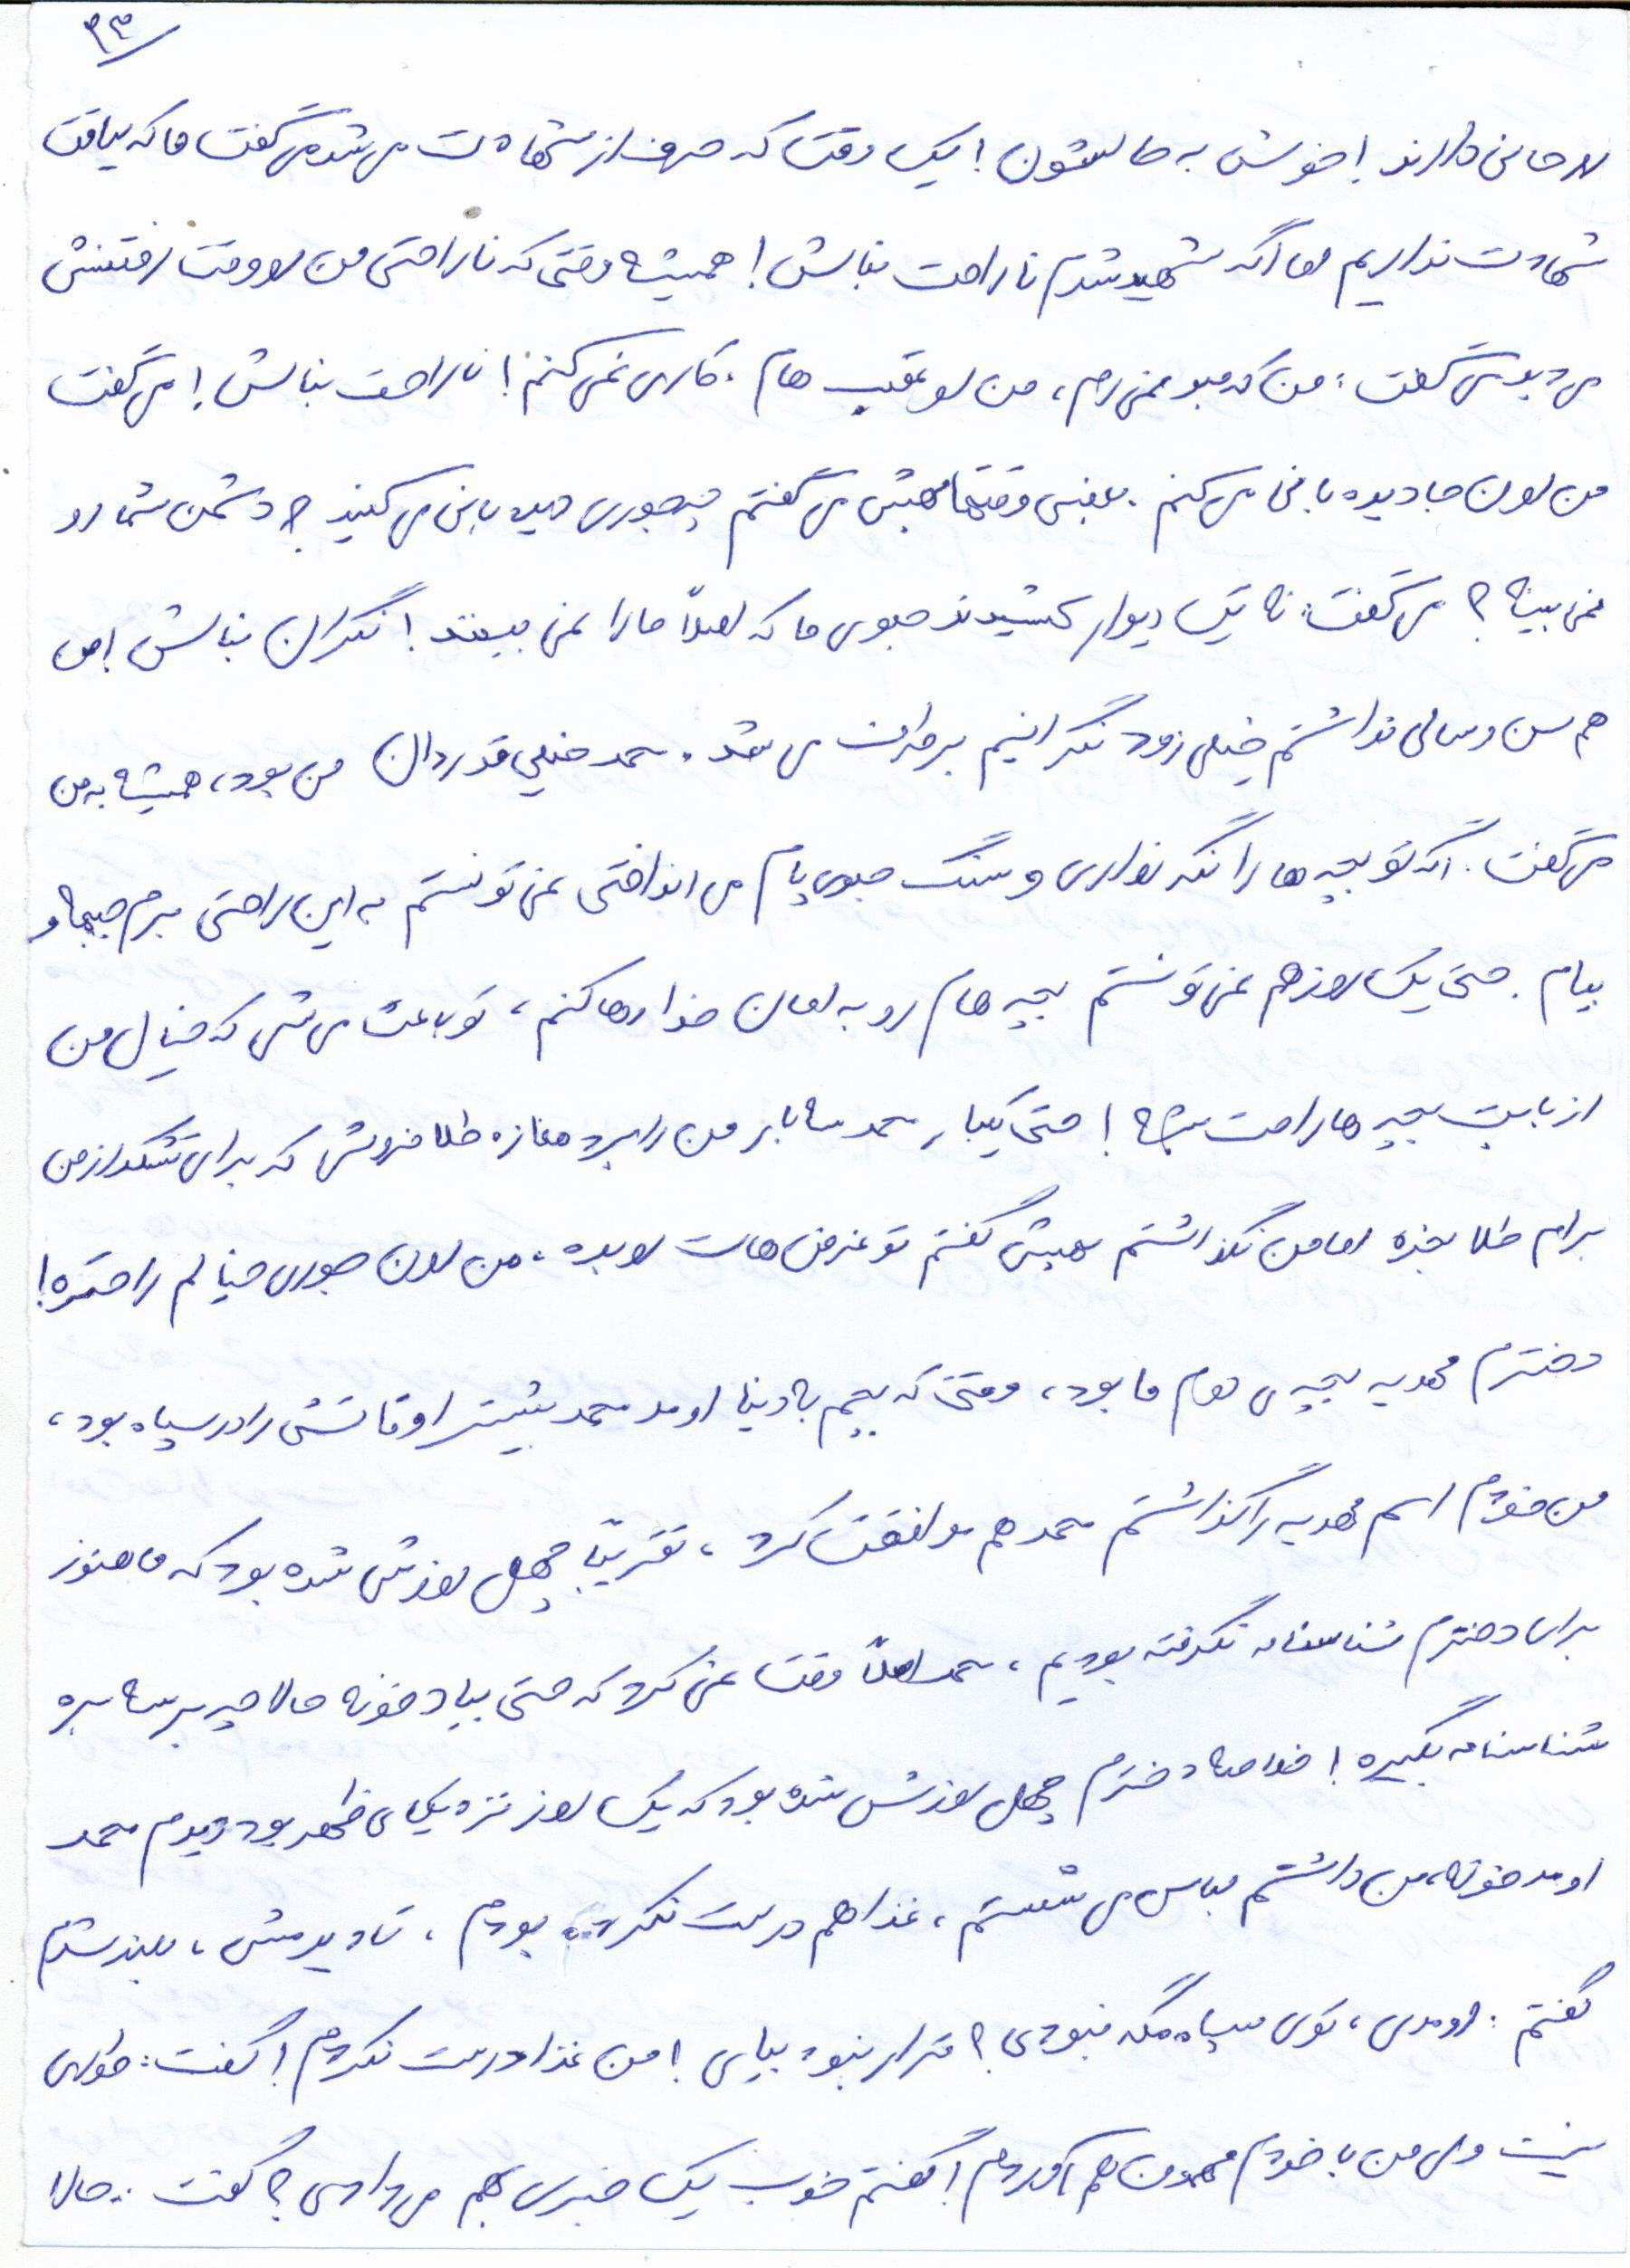 ۹۳
روحانی دارند! خوش به حالشون! یک وقت که حرف از شهادت می شد می گفت ما که لیاقت
شهادت نداریم اما اگه شهید شدم ناراحت نباش! همیشه وقتی که ناراحتی من رو وقت رفتنش
می دید می گفت: من که جلو نمی رم، من رو عقب هام. کاری نمی کنم! ناراحت نباش! می گفت
من اون جا دیده بانی می کنم. بعضی وقتها بهش می گفتم چه جوری دیده بانی می کنید؟ دشمن شما رو
نمی بینه؟ می گفت: نه یک دیوار کشیدند جلوی ما که اصلاً ما را نمی بینند! نگران نباش! من
هم سن و سالی نداشتم خیلی زود نگرانیم برطرف می شد. محمد خیلی قدردان من بود، همیشه به من
می گفت: اگه تو بچه ها را نگه نداری و سنگ جلوی پام می انداختی نمی تونستم به این راحتی برم جبهه و
بیام. حتی یک روز هم نمی تونستم بچه هام رو به امان خدا رها کنم، تو باعث می شی که خیال من
از بابت بچه ها راحت بشه! حتی یکبار محمد سه بار من را برد مغازه طلا فروشی که برای تشکر از من
برام طلا بخره اما من نگذاشتم بهش گفتم تو غرض هات رو بده. من اون جوری خیالم راحتره!
دخترم مهدیه بچه ی دوم ما بود، وقتی که بچم به دنیا اومد محمد بیشتر اوقاتش را در سپاه بود،
من خودم اسم مهدیه را گذاشتم محمد هم موافقت کرد، تقریباً چهل روزش شده بود که ما هنوز
برای دخترم شناسنامه نگرفته بودیم، محمد اصلاً وقت نمی کرد که حتی بیاد خونه حالا چه برسه بره
شناسنامه بگیره! خلاصه دخترم چهل روزش شده بود که یک روز نزدیکای ظهر بود دیدم محمد
اومد خونه، من داشتم لباس می شستم، غذا هم درست نکرده بودم، تا دیدمش، بلند شدم
گفتم: اومدی، توی سپاه مگه نبودی؟ قرار نبود بیای! من غذا درست نکردم! گفت: طوری
نیست ولی من با خودم مهمون هم آوردم! گفتم خوب یک خبری بهم می دادی؟ گفت: حالا